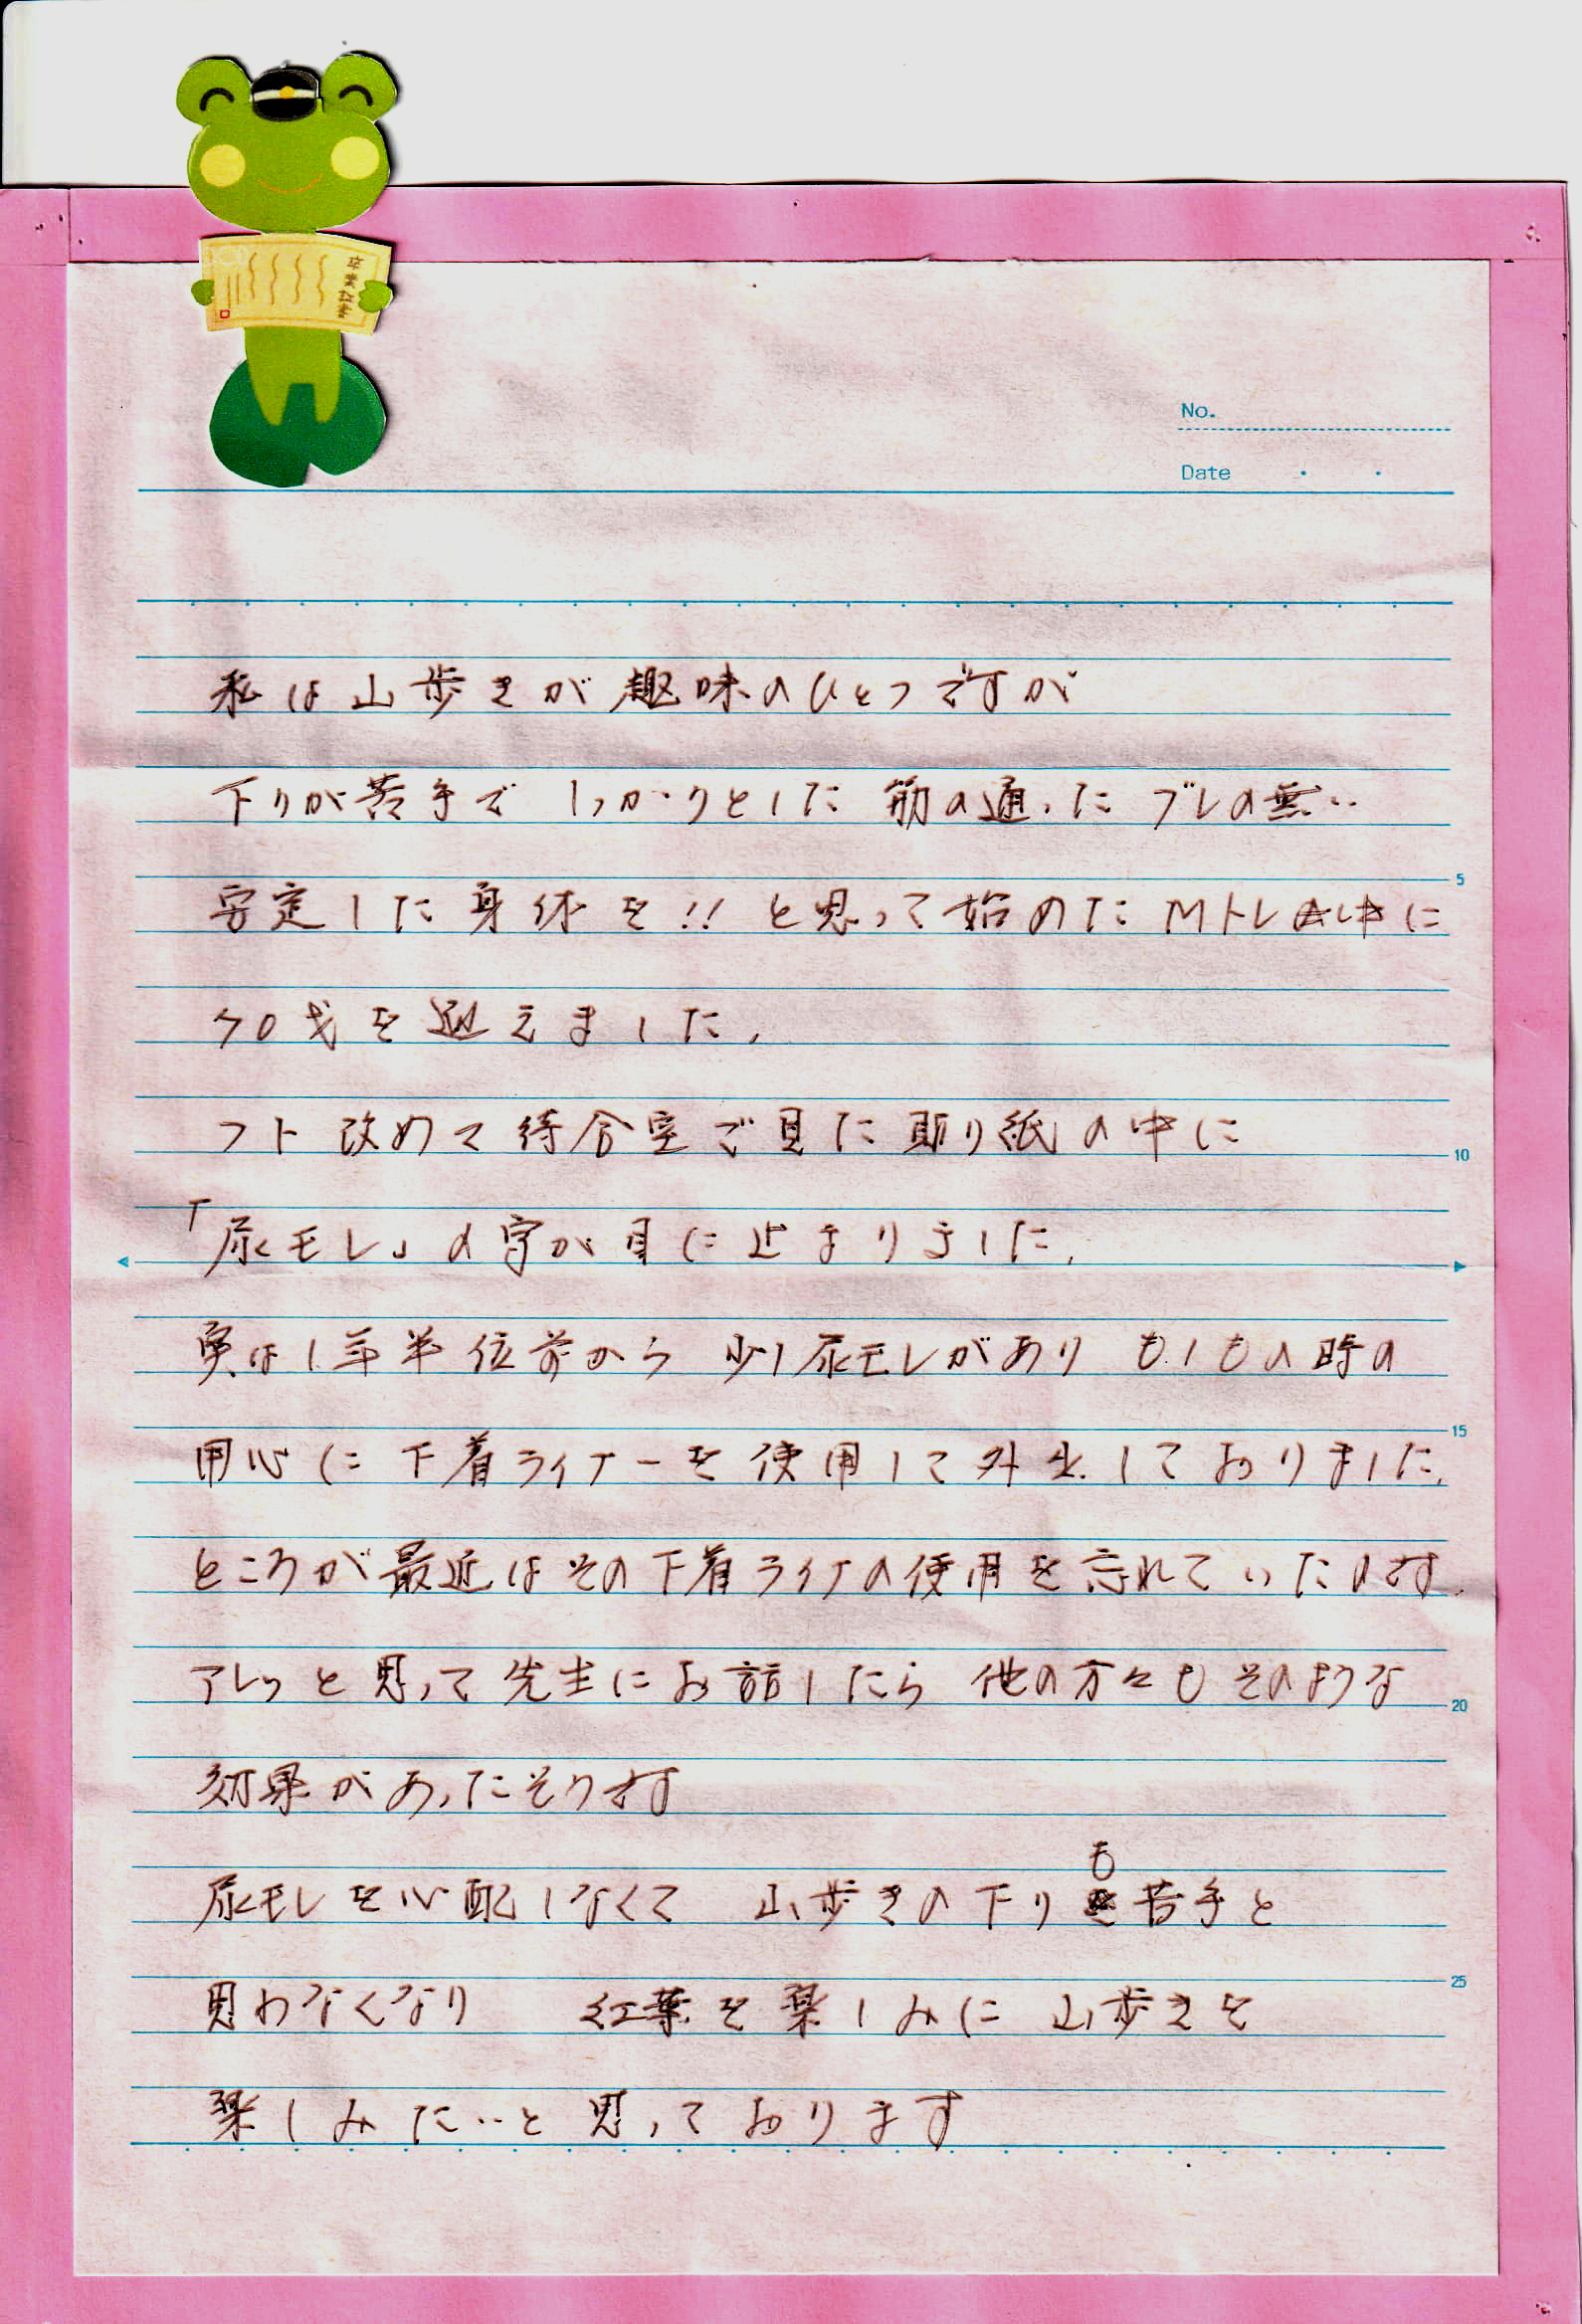 No.
Date
私は山歩きが趣味のひとつですが
下りが苦手で しっかりとした 筋の通った ブレの無い
安定した身体を!! と思って始めた Mトレの中に
70才を迎えました。
フト 改めて待合室で見た貼り紙の中に
「尿モレ」の字が目に止まりました。
実は1年半位前から 少し尿モレがあり もしもの時の
用心に下着ライナーを使用して外出しておりました。
ところが最近はその下着ライナの使用を忘れていたのです。
アレッと思って先生にお話したら 他の方々もそのような
効果があったそうです
尿モレを心配しなくて 山歩きの下りも苦手と
思わなくなり 紅葉を楽しみに山歩きを
楽しみたいと思っております
5
10
15
20
25